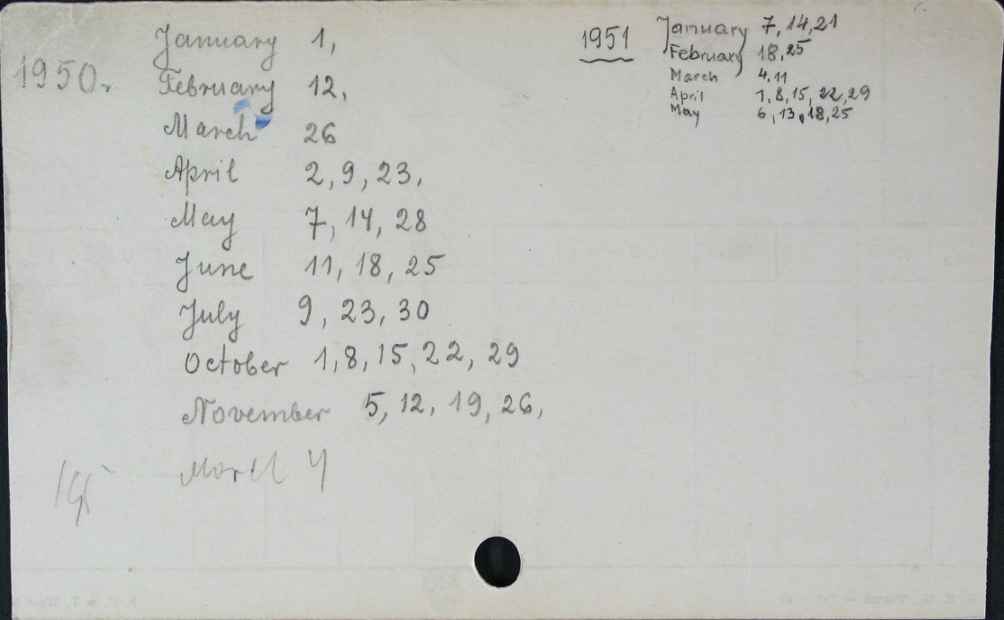 1950.
January 1,
February 12,
March 26
April 2, 9, 23,
May 7, 14, 28
June 11, 18, 25
July 9, 23, 30
October 1, 8, 15, 22, 29
November 5, 12, 19, 26,
March 4
1951
January 7, 14, 21
February 18, 25
March 4, 11
April 1, 8, 15, 22, 29
May 6, 13, 18, 25